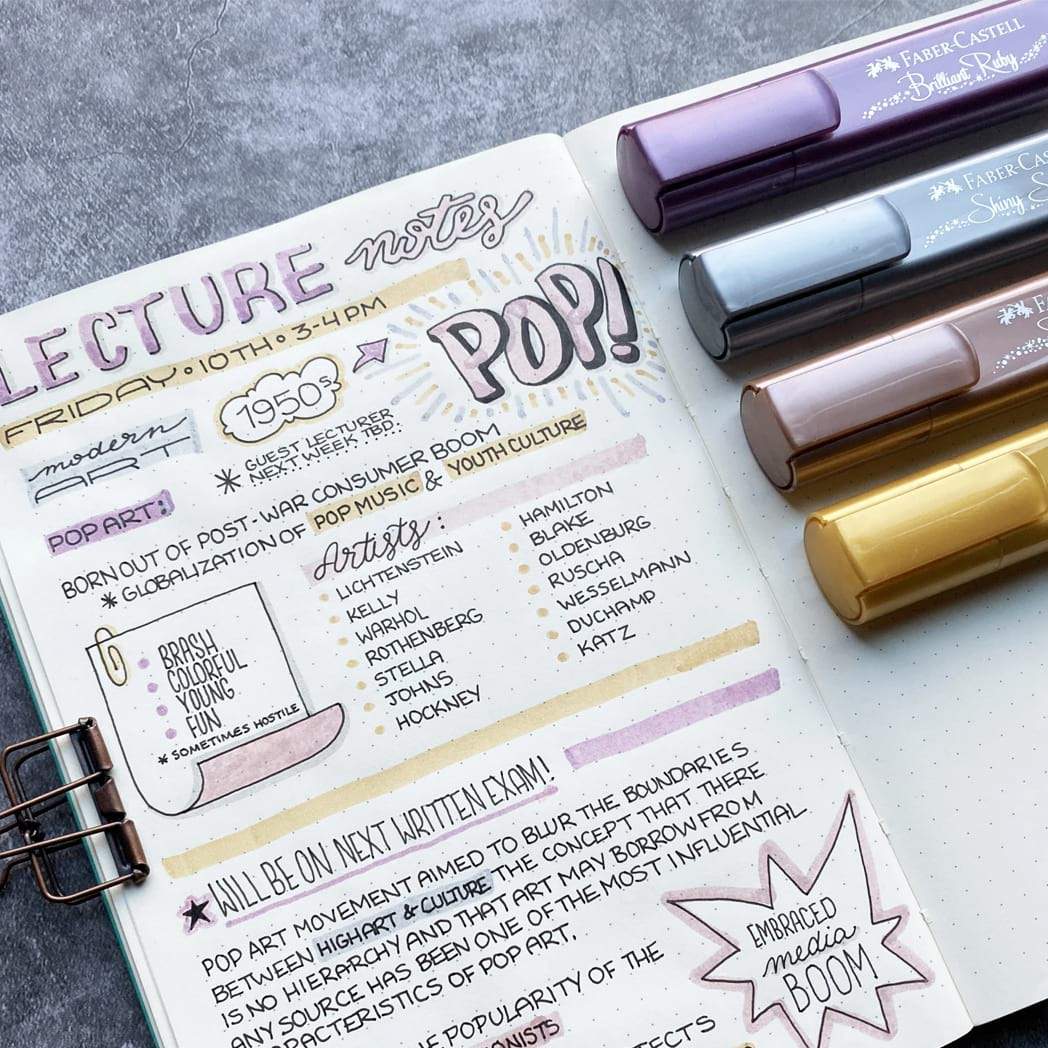 LECTURE notes
FRIDAY • 10TH • 3-4 PM
modern
ART
1950s
POP!
* GUEST LECTURER
NEXT WEEK TBD:
POP ART:
BORN OUT OF POST-WAR CONSUMER BOOM
* GLOBALIZATION OF POP MUSIC & YOUTH CULTURE
BRASH
COLORFUL
YOUNG
FUN
* SOMETIMES HOSTILE
Artists:
LICHTENSTEIN
KELLY
WARHOL
ROTHENBERG
STELLA
JOHNS
HOCKNEY
HAMILTON
BLAKE
OLDENBURG
RUSCHA
WESSELMANN
DUCHAMP
KATZ
★ WILL BE ON NEXT WRITTEN EXAM!
POP ART MOVEMENT AIMED TO BLUR THE BOUNDARIES
BETWEEN HIGH ART & CULTURE THE CONCEPT THAT THERE
IS NO HIERARCHY AND THAT ART MAY BORROW FROM
ANY SOURCE HAS BEEN ONE OF THE MOST INFLUENTIAL
RACTERISTICS OF POP ART.
E POPULARITY OF THE
ONISTS
ECTS
EMBRACED
media
BOOM
FABER-CASTELL
Brilliant Ruby
FABER-CA
Shiny S